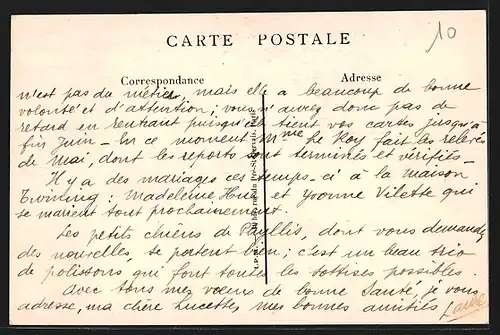 10
CARTE POSTALE
Correspondance
Adresse
n'est pas du métier, mais elle a beaucoup de bonne
volonté et d'attention ; vous n'aurez donc pas de
retard en rentrant puisqu'elle tient vos cartes jusqu'à
fin Juin — En ce moment Mme Le Roy fait les relevés
de Mai, dont les reports sont terminés et vérifiés —
Il y a des mariages ces temps-ci à la maison
Twining : Madeleine et Yvonne Vilette qui
se marient tout prochainement.
Les petits chiens de Phyllis, dont vous demandez
des nouvelles, se portent bien ; c'est un beau trio
de polissons qui font toutes les sottises possibles.
Avec tous mes vœux de bonne Santé, je vous
adresse, ma chère Lucette, mes bonnes amitiés